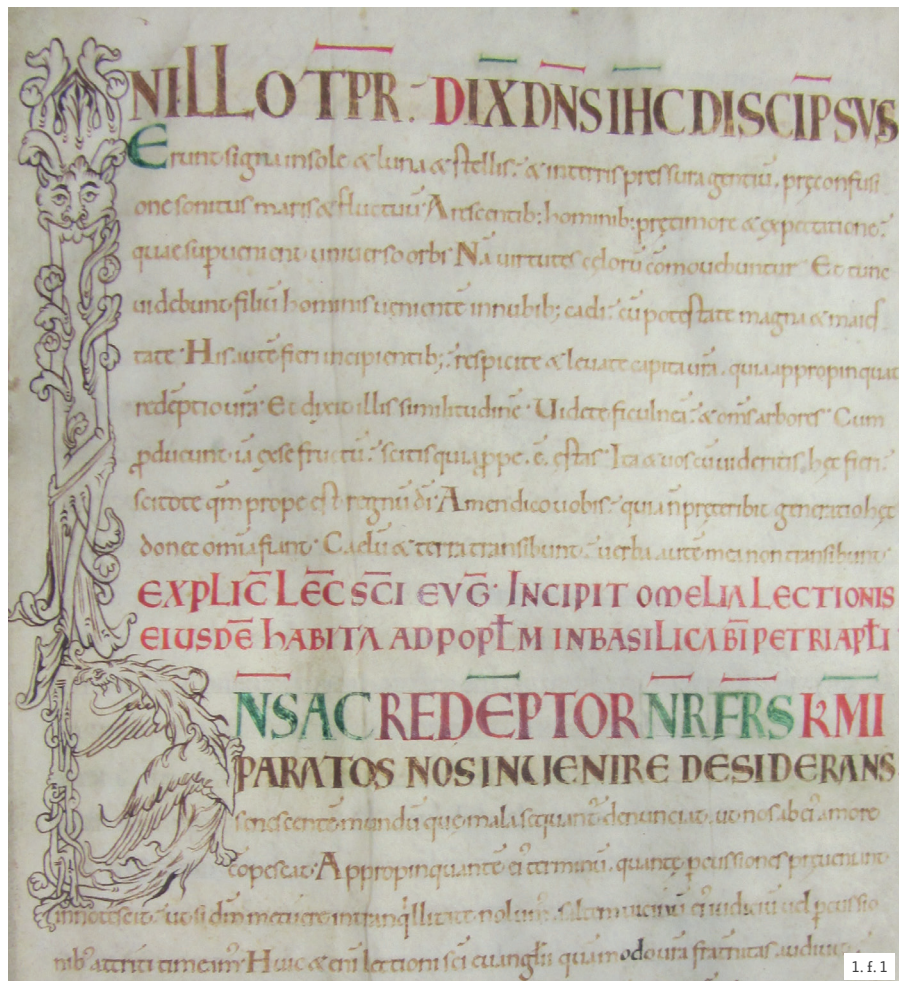 IN ILLO TPR. DIX DNS IHC DISCIP SVS
Erunt signa in sole & luna & stellis. & in terris pressura gentiū. pręconfusi
one sonitus maris & fluctuū. Arescentib; hominib; prę timore & expectatione.
quae supuenient uniuerso orbi. Nā uirtutes cęlorū cōmouebuntur. Et tunc
uidebunt filiū hominis uenientē in nubib; cęli. cū potestate magna & maies
tate. His autē fieri incipientib; respicite & leuate capita urā. quia appropinquat
redēptio urā. Et dixit illis similitudinē. Uidete ficulneā. & oms arbores. Cum
producunt iā ex se fructū. scitis quia ppe. ē. ęstas. Ita & uos cū uideritis hęc fieri.
scitote qm prope est regnū di. Amen dico uobis. quia n pręteribit generatio hęc
donec omia fiant. Caelū & terra transibunt. uerba autē mea non transibunt.
EXPLIC LEC SCI EVG. INCIPIT OMELIA LECTIONIS
EIUSDĒ HABITA AD POPLM IN BASILICA BI PETRI APLI
DNS AC REDEPTOR NR FRS KMI
PARATOS NOS INUENIRE DESIDERANS
senescentē mundū quę mala sequant denunciat. ut nos ab ei amore
copescat. Appropinquantē ei terminū. quantę pcussiones pręueniant
innotescit. ut si dm metuere in tranqllitate nolum. saltim uicinū ei iudiciū uel pcussio
nib; attriti timeam. Huic & eni lectioni sci euanglii quam odo ura fraternitas audiuit.
1. f. 1